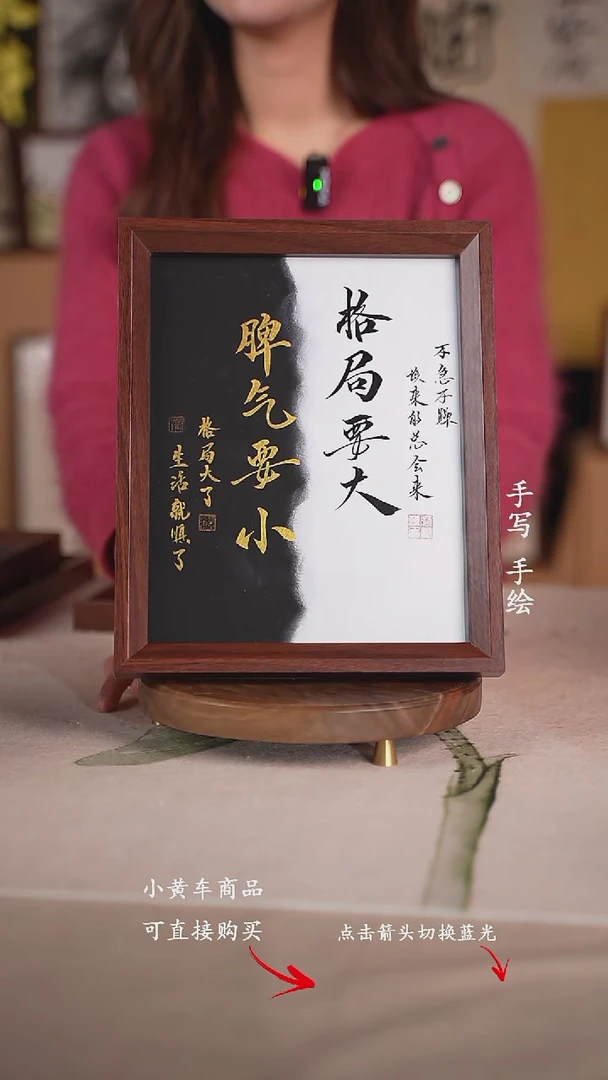 不急不躁
该来的总会来
格局要大
脾气要小
格局大了
生活就顺了
手写 手绘
小黄车商品
可直接购买
点击箭头切换蓝光